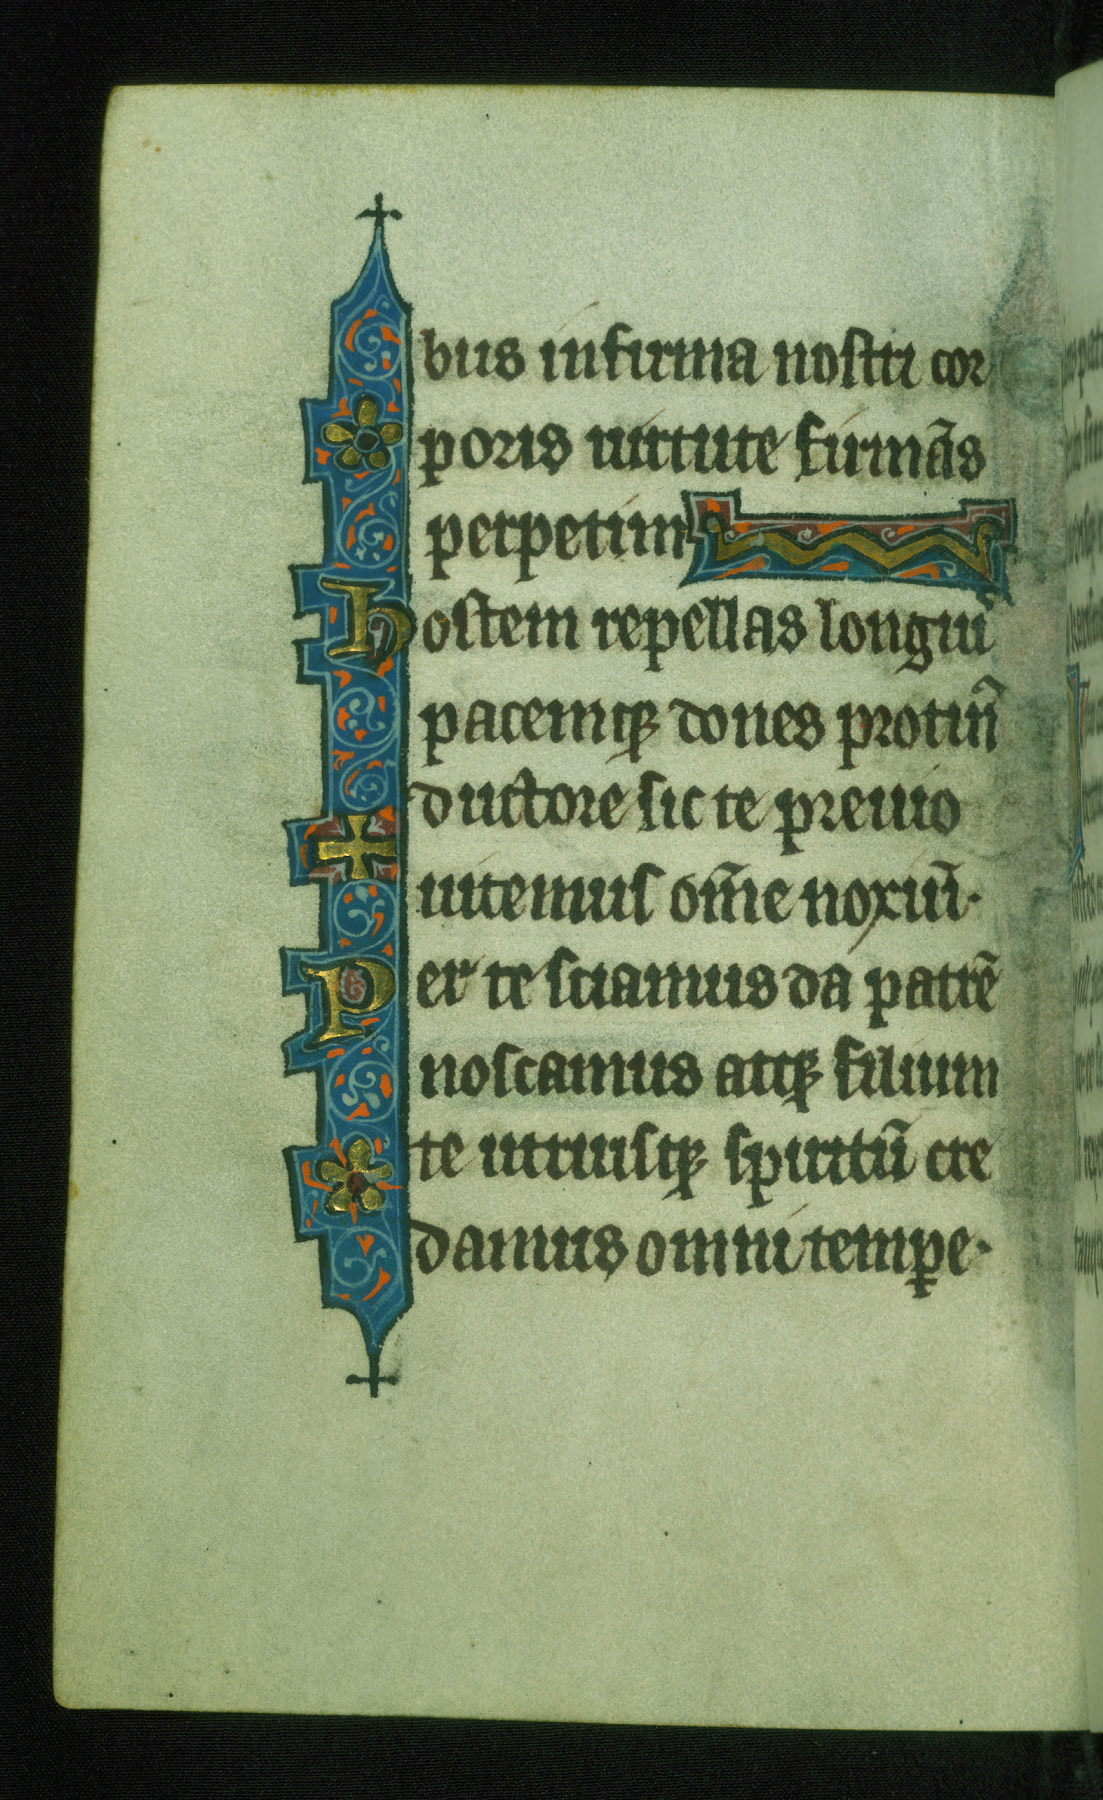 bus infirma nostri cor
poris uirtute firmãs
perpetim
hostem repellas longiu
pacemqꝫ dones protin̄
ductore sic te preuio
uitemus om̄e noxiū·
Per te sciamus da patrē
noscamus atqꝫ filium
te utriusqꝫ spiritū cre
damus omni tempe·